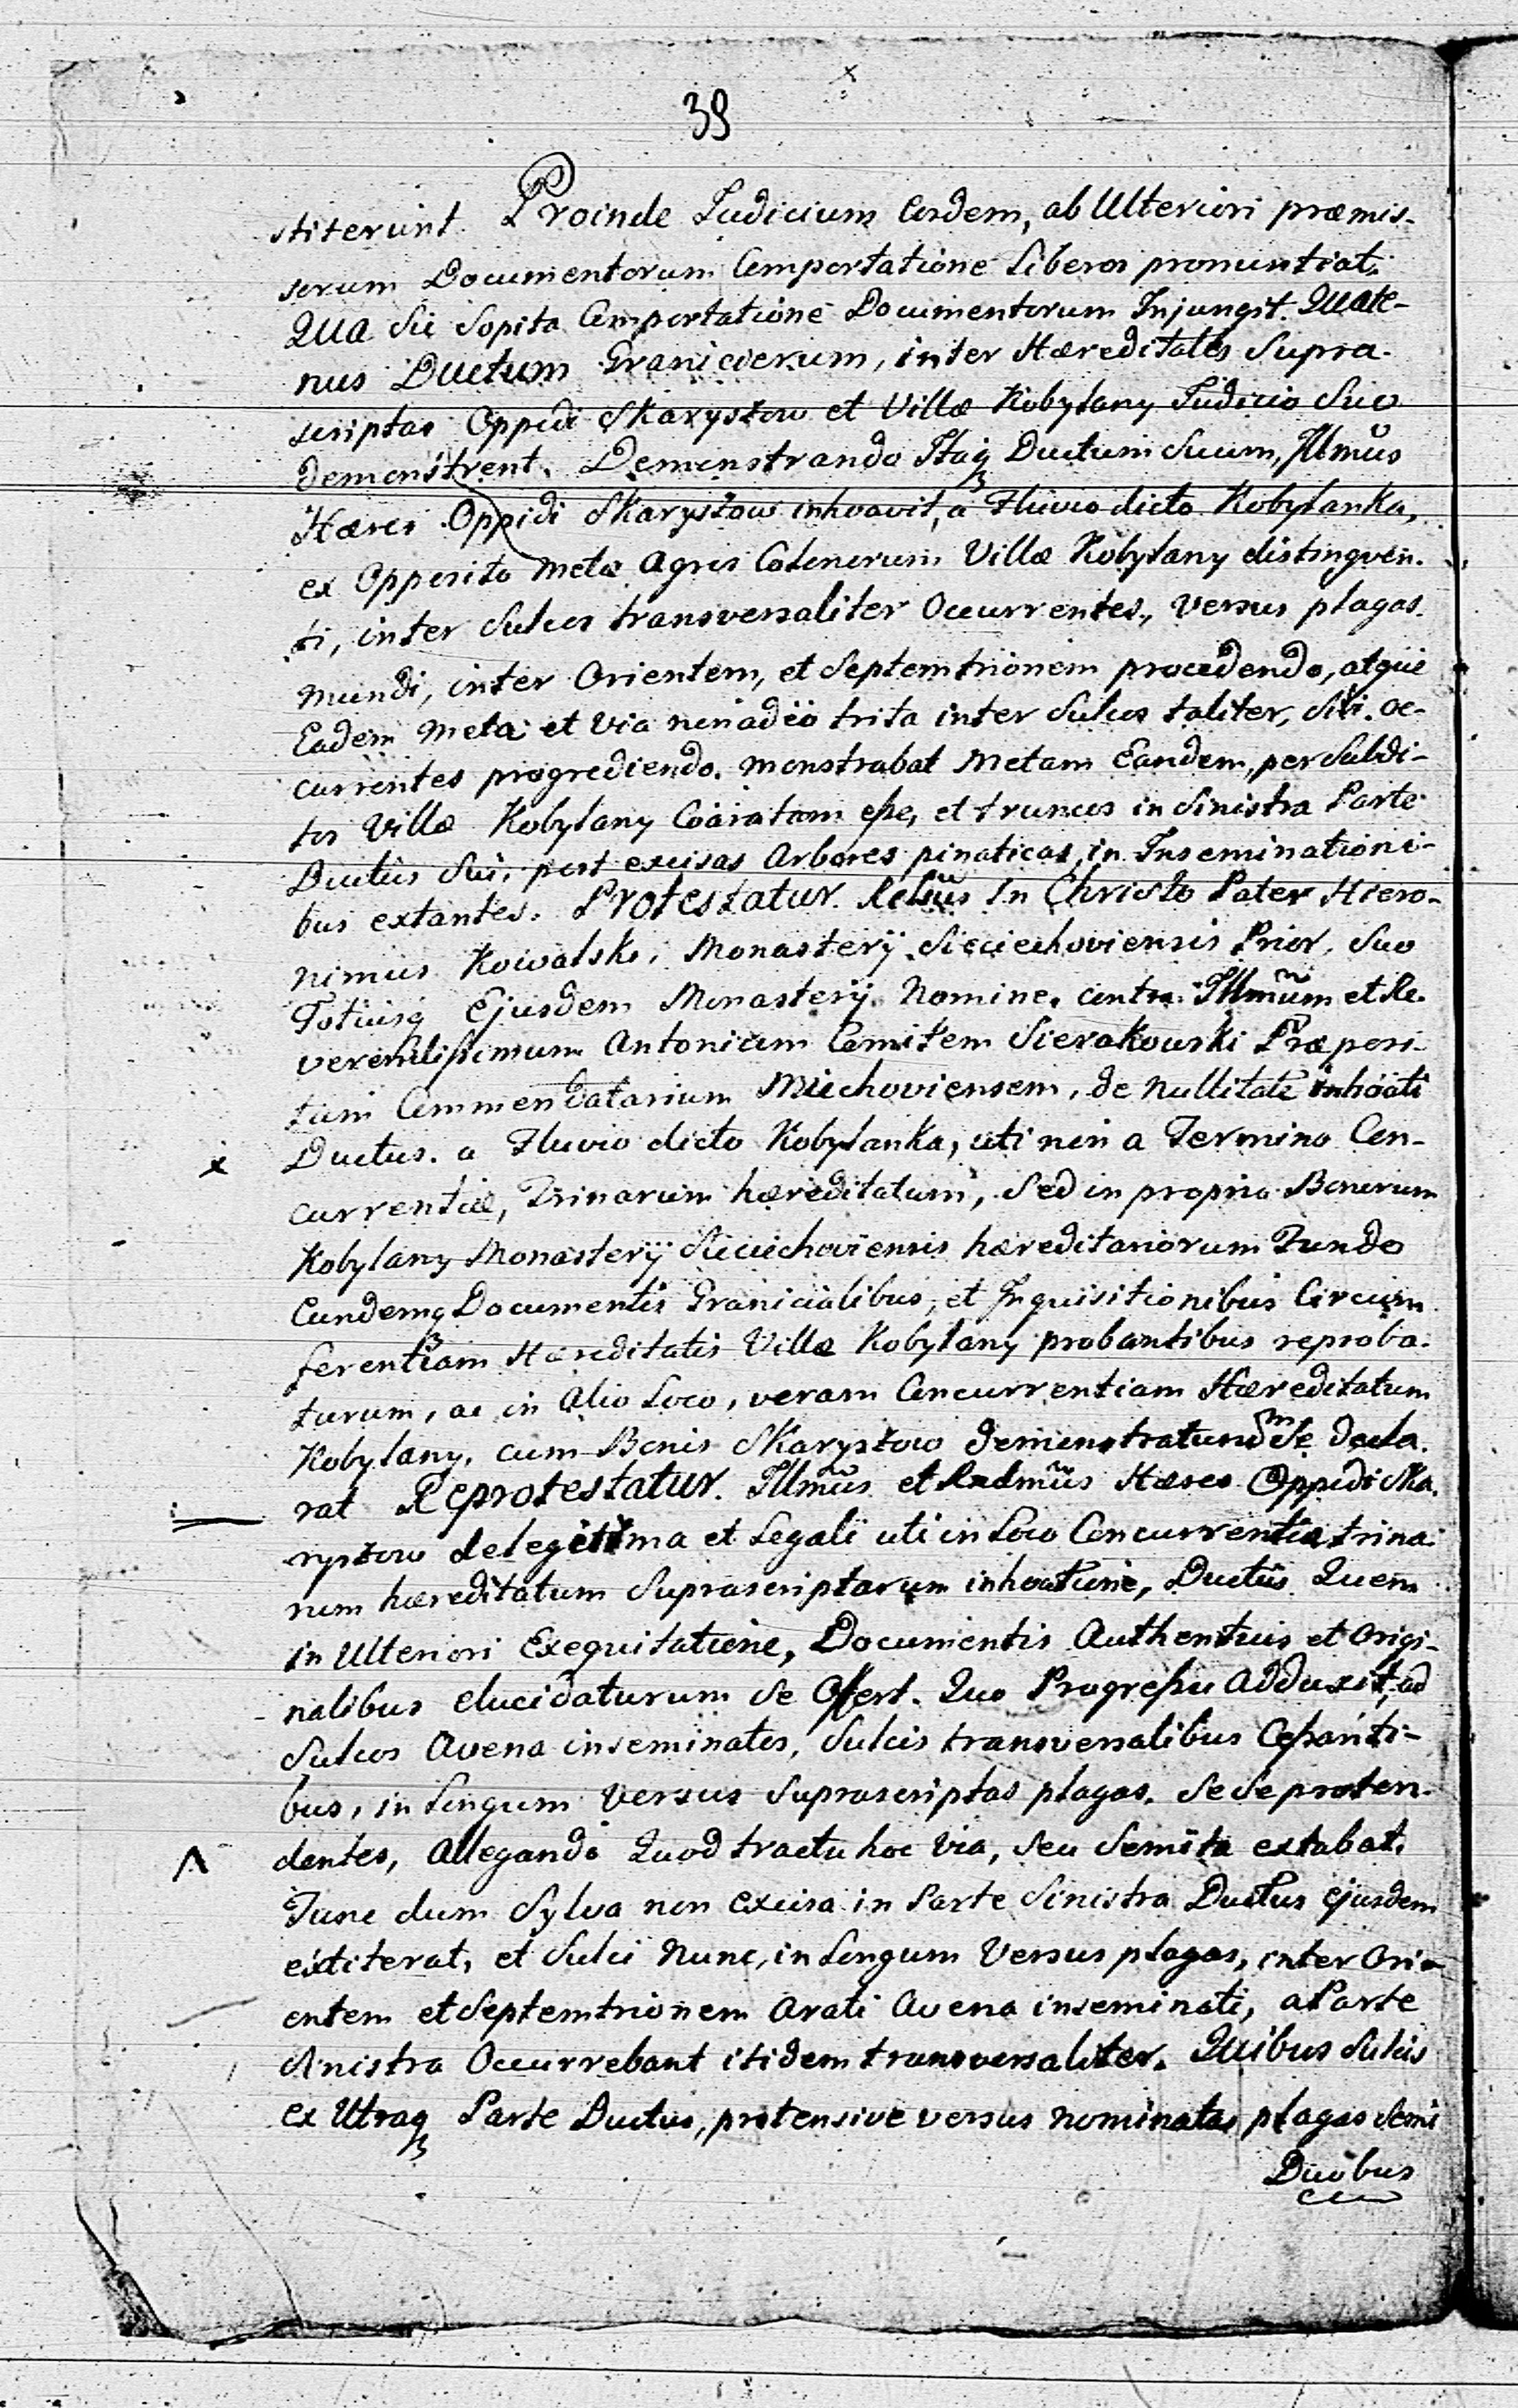 39
stiterunt. Proinde Judicium Eosdem, ab Ulteriori præmis-
sorum Documentorum Comportatione Liberos pronuntiat.
Qua sic Sopita Comportatione Documentorum Injungit. Quate-
nus Ductum Granicierum, inter Hæreditates Supra-
scriptas Oppidi Skaryszow et Villæ Kobylany Judicio Suo
demonstrent. Demonstrando Itaq Ductum Suum, Illmus
Hæres Oppidi Skaryszow inhoavit, a Fluvio dicto Kobylanka,
ex Opposito metæ Agros Colonorum Villæ Kobylany distingven-
ti, inter Sulcos transversaliter Occurrentes, versus plagas
mundi, inter Orientem, et Septemtrionem procedendo, atque
Eadem meta et via non adeo trita inter Sulcos taliter, Sibi oc-
currentes progrediendo. monstrabat metam Eandem, per Subdi-
tos Villæ Kobylany Coaratam esse, et truncos in Sinistra Parte
Ductus Sui, post excisas Arbores pinaticas, in Inseminationi-
bus extantes. Protestatur. Relsus In Christo Pater Hiero-
nimus Kowalski, Monasterij Sieciechoviensis Prior, Suo
Totiusq Ejusdem Monasterij Nomine, contra Illmum et Re-
verendissimum Antonium Comitem Sierakowski Præposi-
tum Commendatarium Miechoviensem, de Nullitate inhoati
x Ductus. a Fluvio dicto Kobylanka, uti non a Termino Con-
currentiæ, Trinarum hæreditatum, Sed in proprio Bonorum
Kobylany Monasterij Sieciechoviensis hæreditariorum Fundo
Eundemq Documentis Granicialibus, et Inquisitionibus Circum
ferentiam Hæreditatis Villæ Kobylany probantibus reproba-
turum, ac in Alio Loco, veram Concurrentiam Hæreditatum
Kobylany, cum Bonis Skaryszow demonstratum Se decla-
rat Reprotestatur. Illmus et Rndmus Hæres Oppidi Ska-
ryszow de legitima et Legali uti in Loco Concurrentiæ trina-
rum hæreditatum Suprascriptarum inhoatione, Ductus Quem
in Ulteriori Exequitatione, Documentis Authenticis et Origi-
nalibus elucidaturum Se Offert. Quo Progressu adduxit, ad
Sulcos Avena inseminatos, Sulcis transversalibus Cessanti-
bus, in Longum versus Suprascriptas plagas. Se Se proten-
Λ dentes, Allegando Quod tractu hoc via, seu Semita extabat.
Tunc dum Sylva non Excisa in Parte Sinistra Ductus ejusdem
extiterat, et Sulci Nunc, in Longum Versus plagas, inter Ori-
entem et Septemtrionem Arati Avena inseminati, a Parte
Sinistra Occurrebant itidem transversaliter. Quibus Sulcis
ex Utraq Parte Ductus, protensive versus nominatas plagas Semi
Duobus